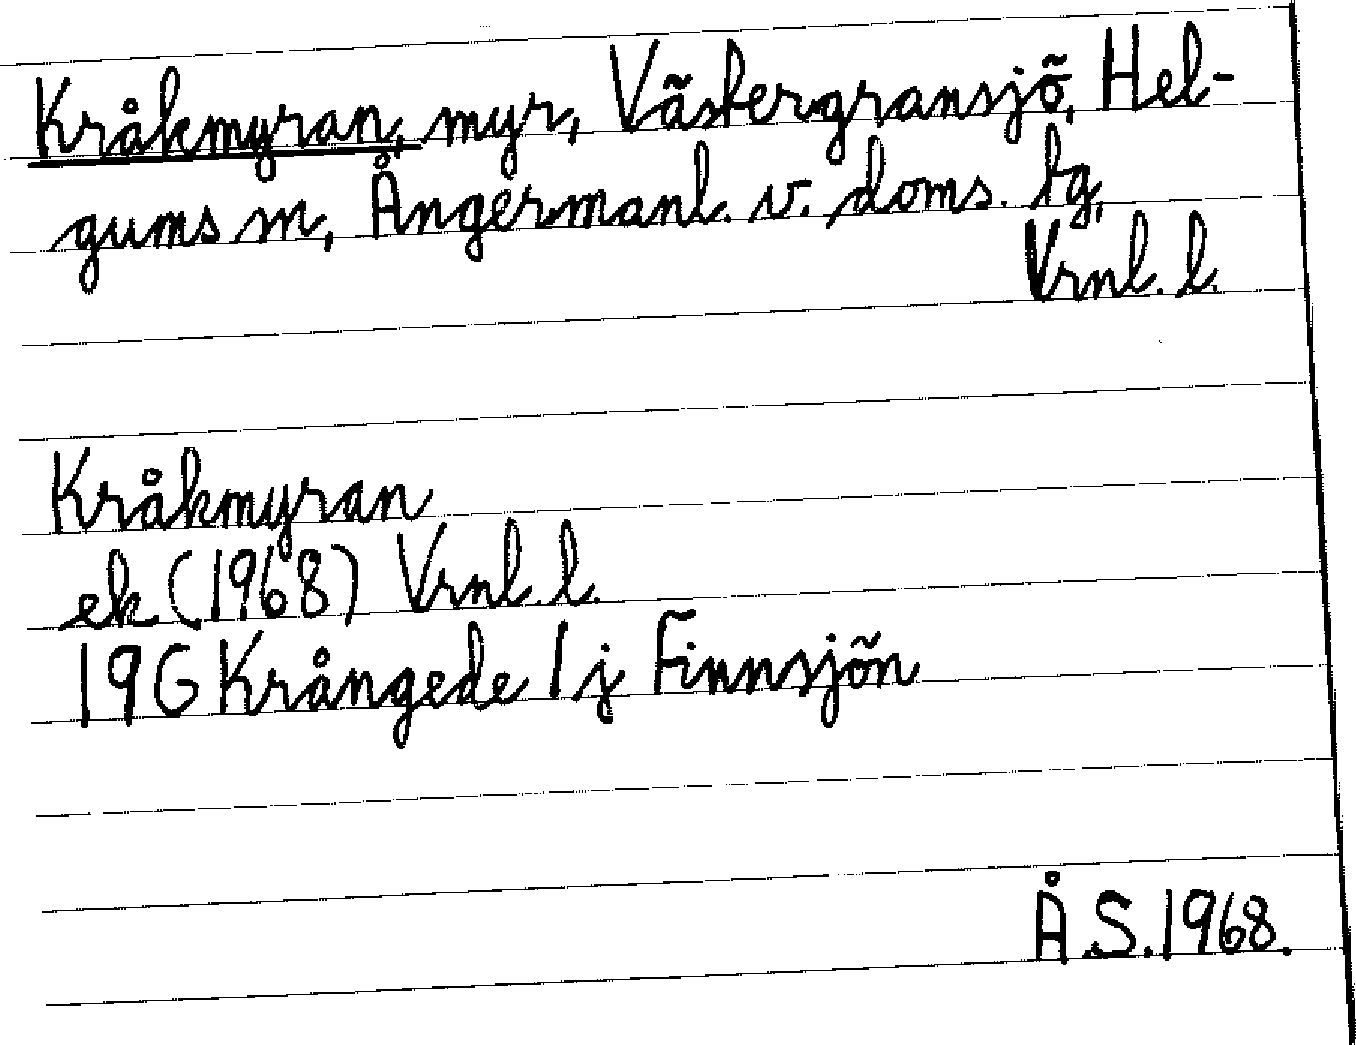 Kråkmyran, myr, Västergransjö, Hel-
gums sn, Ångermanl. v. doms. tg,
Vrnl. l.
Kråkmyran
ek (1968) Vrnl. l.
19G Krångede 1 j Finnsjön
Å.S. 1968.